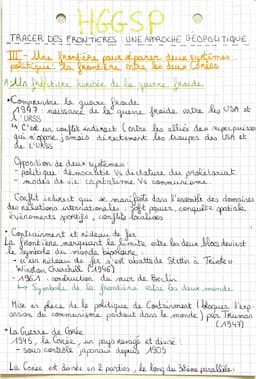 HGGSP
TRACER DES FRONTIERES : UNE APPROCHE GÉOPOLITIQUE
III - Une frontière pour séparer deux systèmes
politiques : la frontière entre les deux Corées
1. Une frontière héritée de la guerre froide
• Comprendre la guerre froide
1947 : naissance de la guerre froide entre les USA et
l'URSS
↳ C'est un conflit indirect (entre les alliés des superpuissances)
qui n'oppose jamais directement les troupes des USA et
de l'URSS
Opposition de deux systèmes :
- politique : démocratie Vs dictature du prolétariat
- modes de vie : capitalisme Vs communisme
Conflit indirect qui se manifeste dans l'ensemble des domaines
des relations internationales : soft power, conquête spatiale,
événements sportifs, conflits localisés
• Containment et rideau de fer
La frontière marquant la limite entre les deux blocs devient
le symbole du monde bipolaire.
- "un rideau de fer s'est abattu de Stettin à Trieste"
Winston Churchill (1946)
- 1961 : construction du mur de Berlin
↳ Symbole de la frontière entre les deux mondes
Mise en place de la politique de Containment (bloquer l'exp-
ansion du communisme partout dans le monde) par Truman
(1947)
• La Guerre de Corée
1945, la Corée, un pays ravagé et divisé :
- sous contrôle japonais depuis 1905
La Corée est divisée en 2 parties, le long du 38ème parallèle.